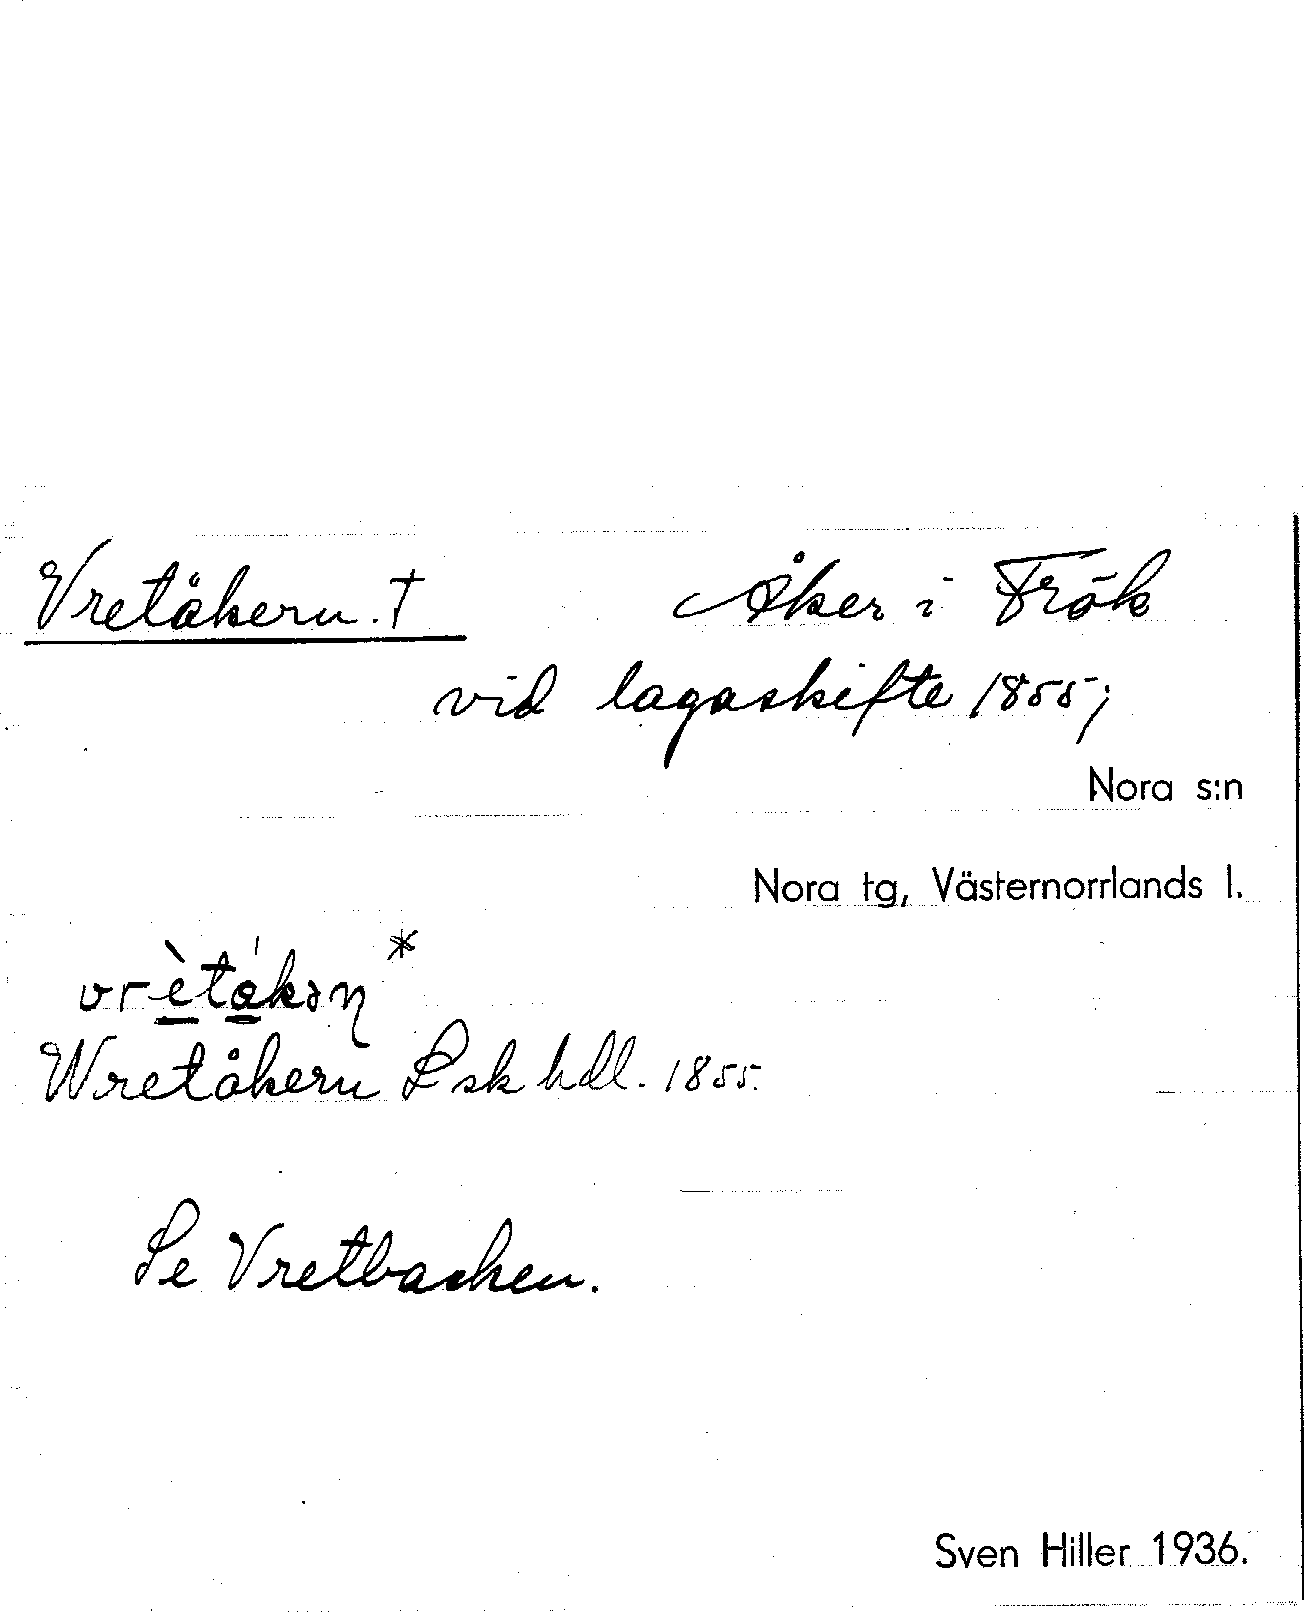 Vretåkern. † Åker i Frök
vid lagaskifte 1855;
Nora s:n
Nora tg, Västernorrlands l.
vrètákən *
Wretåkern Lsk hdl. 1855.
Se Vretbacken.
Sven Hiller 1936.